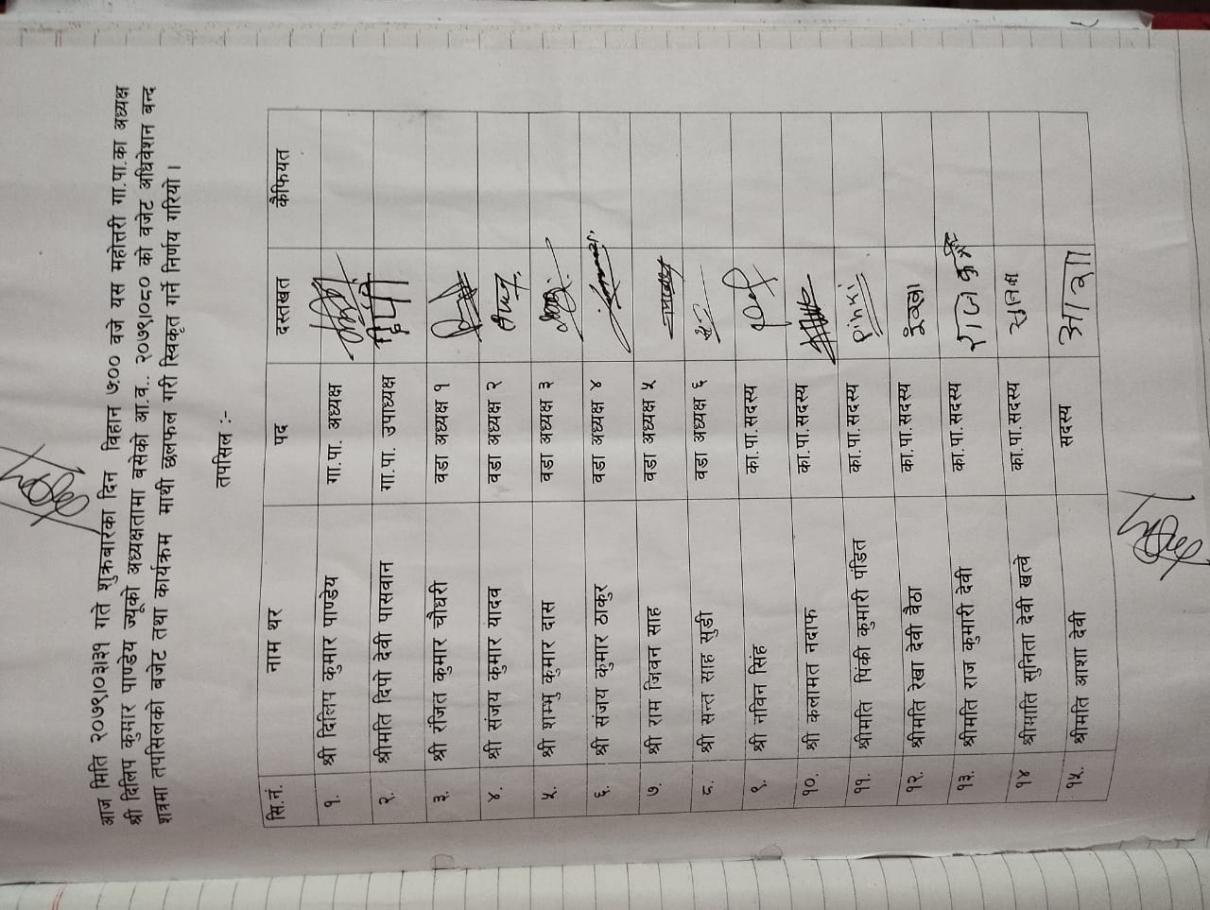 आज मिति २०७९।०३।३१ गते शुक्रबारका दिन विहान ७:०० वजे यस महोत्तरी गा.पा.का अध्यक्ष
श्री दिलिप कुमार पाण्डेय ज्यूको अध्यक्षतामा बसेको आ.व.. २०७९।०८० को वजेट अधिवेशन बन्द
शत्रमा तपसिलको बजेट तथा कार्यक्रम माथी छलफल गरी स्विकृत गर्ने निर्णय गरियो ।
तपसिल :-
सि.नं. नाम थर पद दस्तखत कैफियत
१. श्री दिलिप कुमार पाण्डेय गा.पा. अध्यक्ष
२. श्रीमति दिपो देवी पासवान गा.पा. उपाध्यक्ष
३. श्री रंजित कुमार चौधरी वडा अध्यक्ष १
४. श्री संजय कुमार यादव वडा अध्यक्ष २
५. श्री शम्भु कुमार दास वडा अध्यक्ष ३
६. श्री संजय कुमार ठाकुर वडा अध्यक्ष ४
७. श्री राम जिवन साह वडा अध्यक्ष ५
८. श्री सन्त साह सुडी वडा अध्यक्ष ६
९. श्री नविन सिंह का.पा.सदस्य
१०. श्री कलामत नदाफ का.पा.सदस्य
११. श्रीमति पिंकी कुमारी पंडित का.पा.सदस्य pinki
१२. श्रीमति रेखा देवी वैठा का.पा.सदस्य
१३. श्रीमति राज कुमारी देवी का.पा.सदस्य
१४ श्रीमाति सुनिता देवी खत्वे का.पा.सदस्य
१५. श्रीमति आशा देवी सदस्य